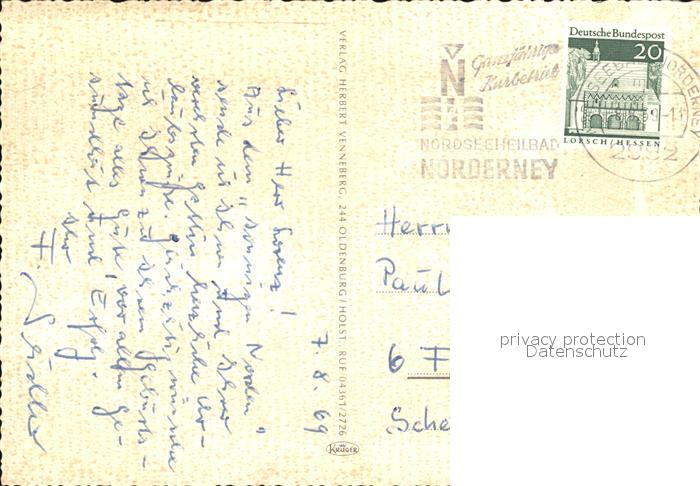 7. 8. 69
Lieber Herr Lorenz!
Aus dem "sonnigen Norden"
sende ich Ihnen und Ihrer
verehrten Gattin herzliche Ur-
laubsgrüße. Gleichzeitig wünsche
ich Ihnen zu Ihrem Geburts-
tage alles Gute, vor allem Ge-
sundheit und Erfolg.
Ihr
H.
VERLAG HERBERT VENNEBERG, 244 OLDENBURG/HOLST. RUF 04361/2726
KRÜGER
Ganzjähriger
Kurbetrieb
N
NORDSEEHEILBAD
NORDERNEY
Deutsche Bundespost
20
LORSCH/HESSEN
2982
Herrn
Paul
6 F
Sche
privacy protection
Datenschutz